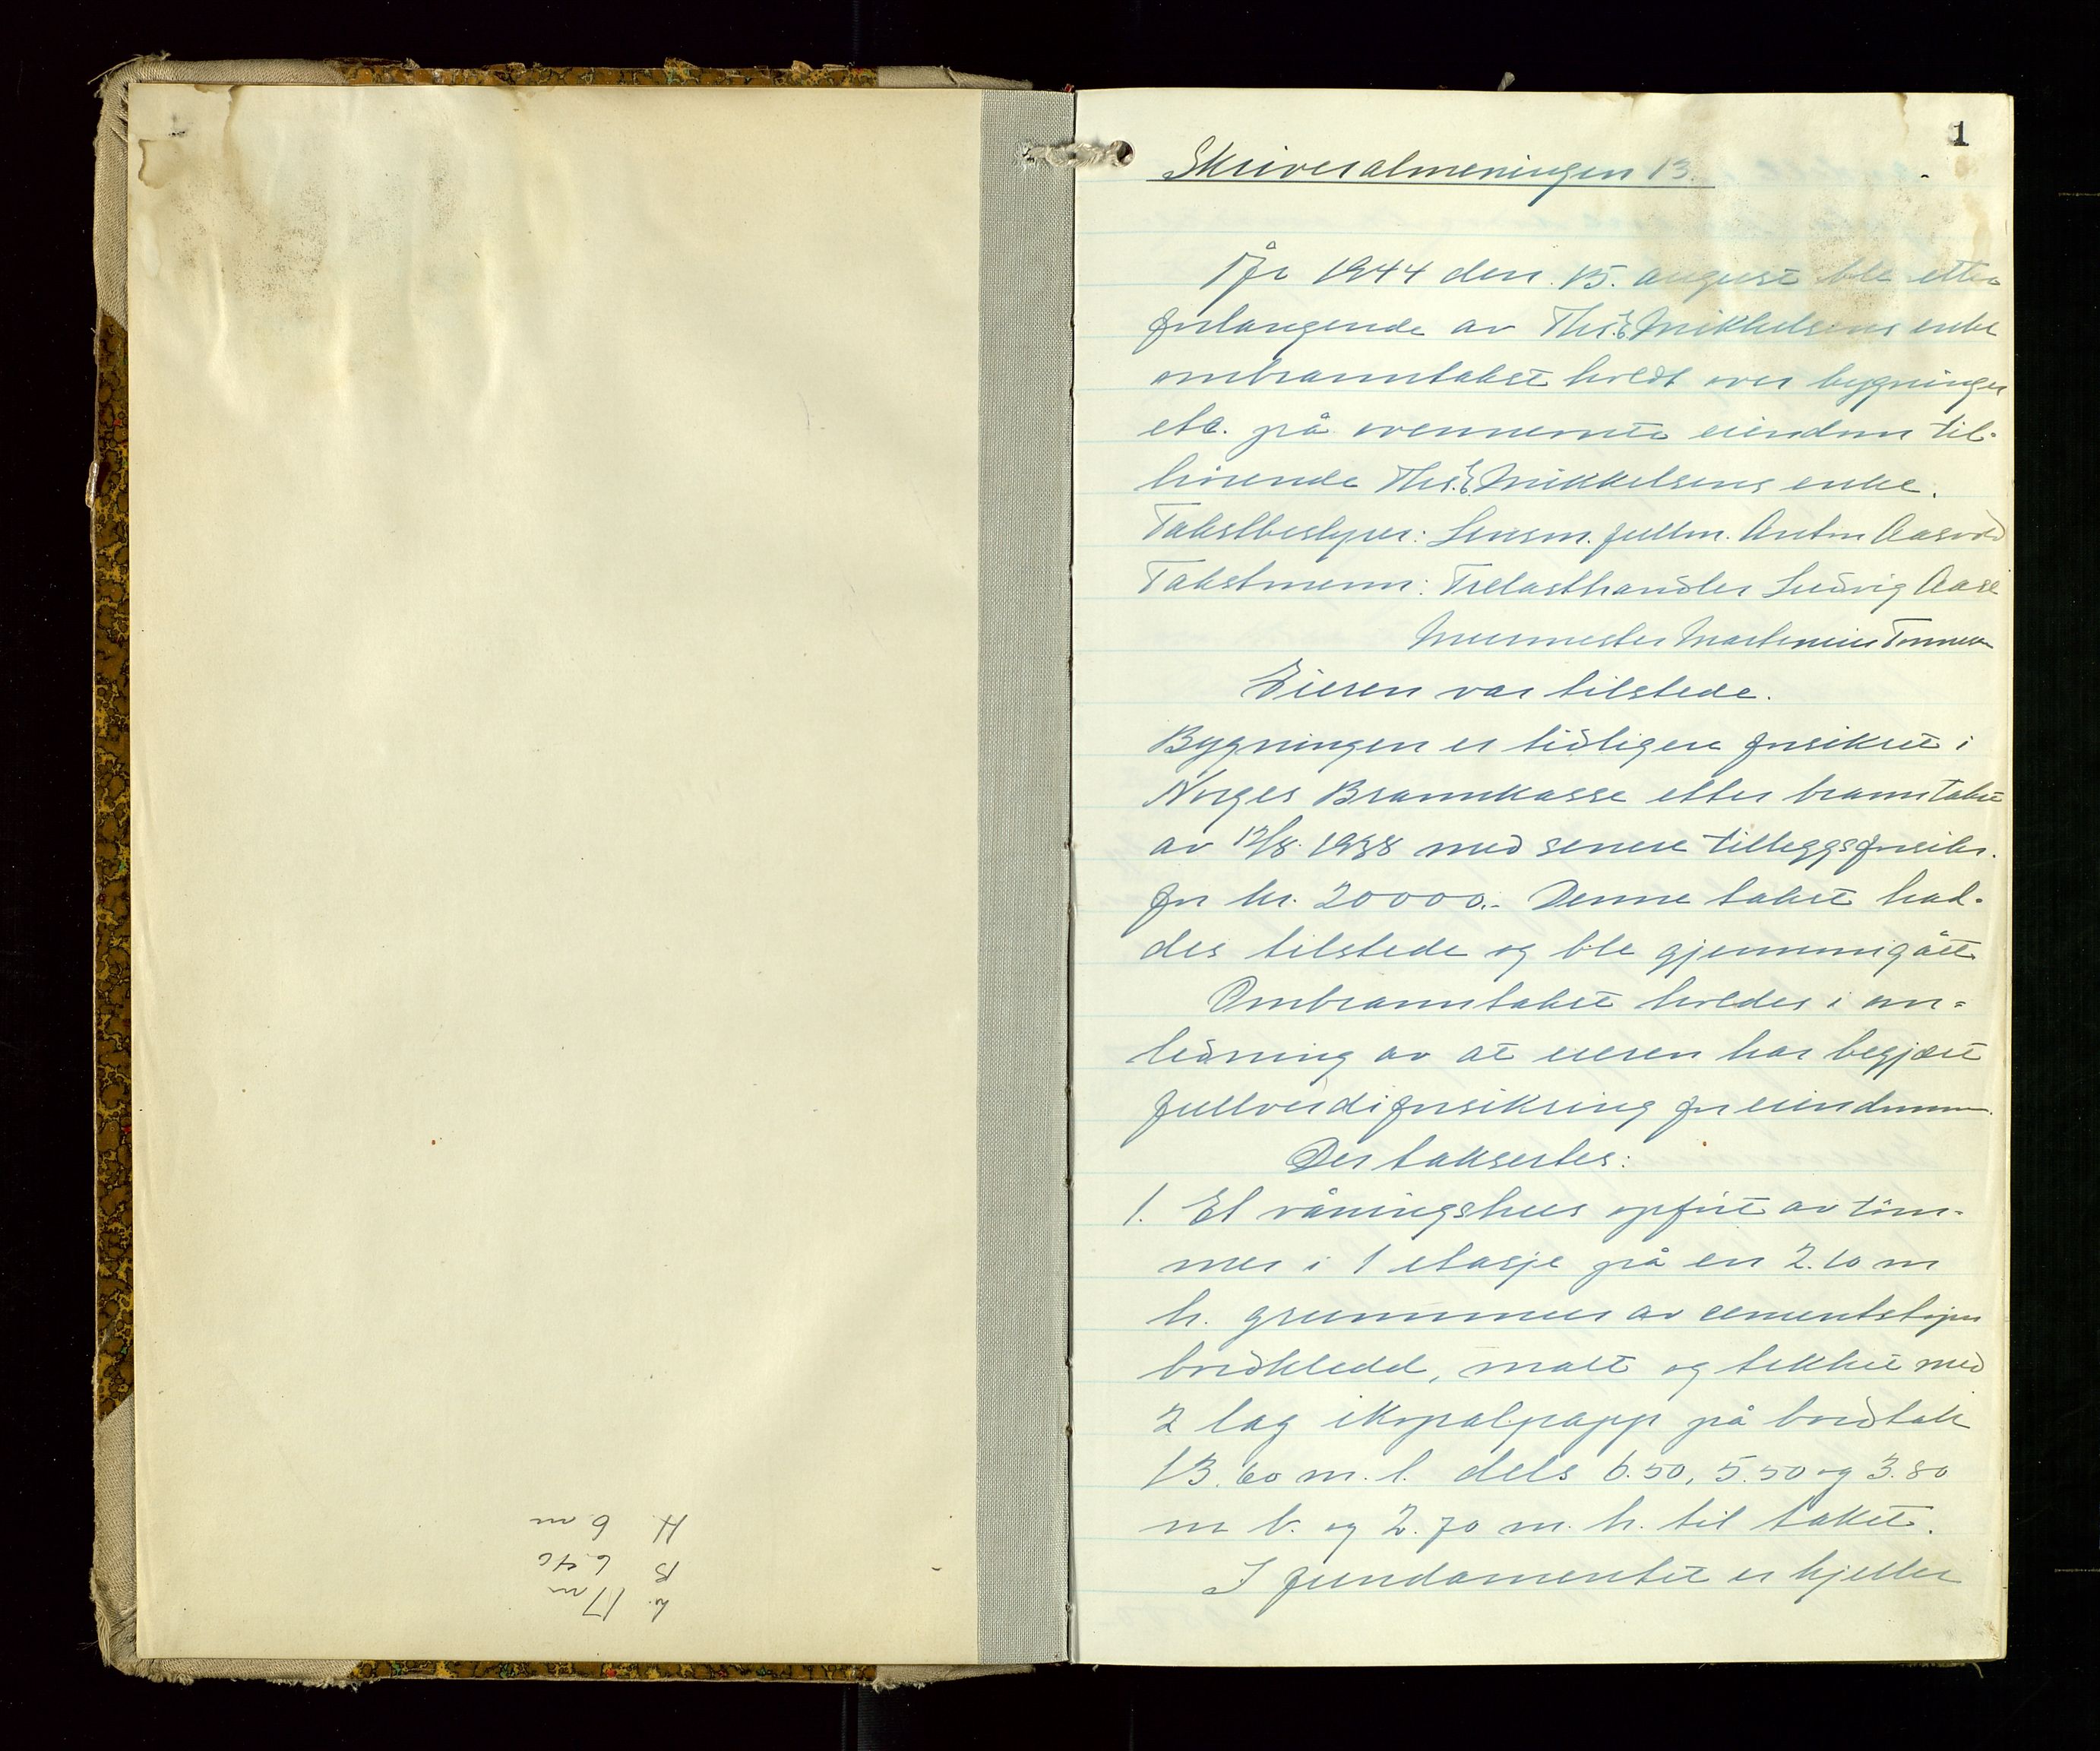 L. 17 m
B 6.40
H 6 m
1
Skriveralmeningen 13.
År 1944 den 15. august ble etter
forlangende av Ths. E. Mikkelsens enke
ombranntakst holdt over bygninger
etc. på ovennevnte eiendom til-
hørende Ths. E. Mikkelsens enke.
Takstbestyrer: Lensm. fullm. Anton Aasvold
Takstmenn: Trelasthandler Ludvig Aase
Murmester Martinius Tønnesen
Eieren var tilstede.
Bygningen er tidligere forsikret i
Norges Brannkasse etter branntakst
av 12/8. 1938 med senere tilleggsforsikr.
for kr. 20000.- Denne takst had-
des tilstede og ble gjennemgått.
Ombranntakst holdes i an-
ledning av at eieren har begjært
fullverdiforsikring for eiendommen.
Der taksertes:
1. Et våningshus opført av tøm-
mer i 1 etasje på en 2.10 m
h. grunnmur av cementstøpn
bordkledd, malt og tekket med
2 lag ikopalpapp på bordtak
13.60 m. l. dels 6.50, 5.50 og 3.80
m b. og 2.70 m. h. til taket.
I fundamentet er kjeller